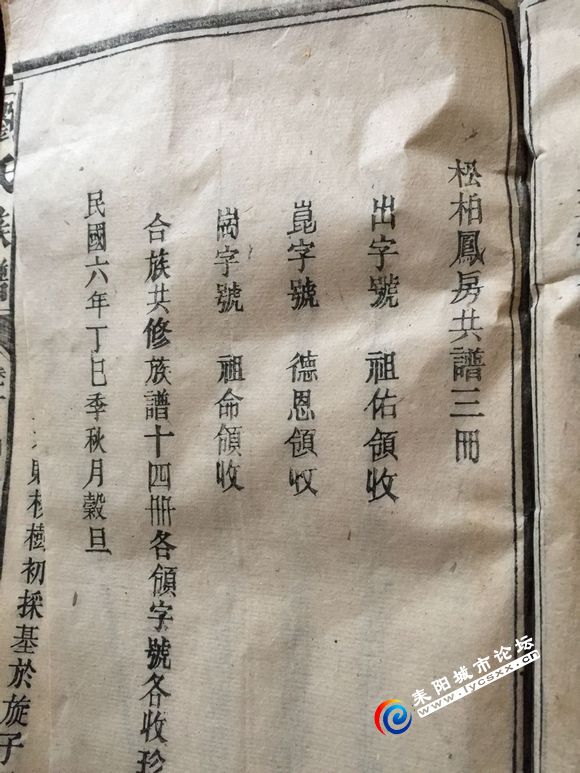 松柏鳳房共譜三冊
出字號　祖佑領收
崑字號　德恩領收
崗字號　祖命領收
合族共修族譜十四冊各領字號各收珍
民國六年丁巳季秋月穀旦
初採基於旋子
耒阳城市论坛
www.lycsxx.cn